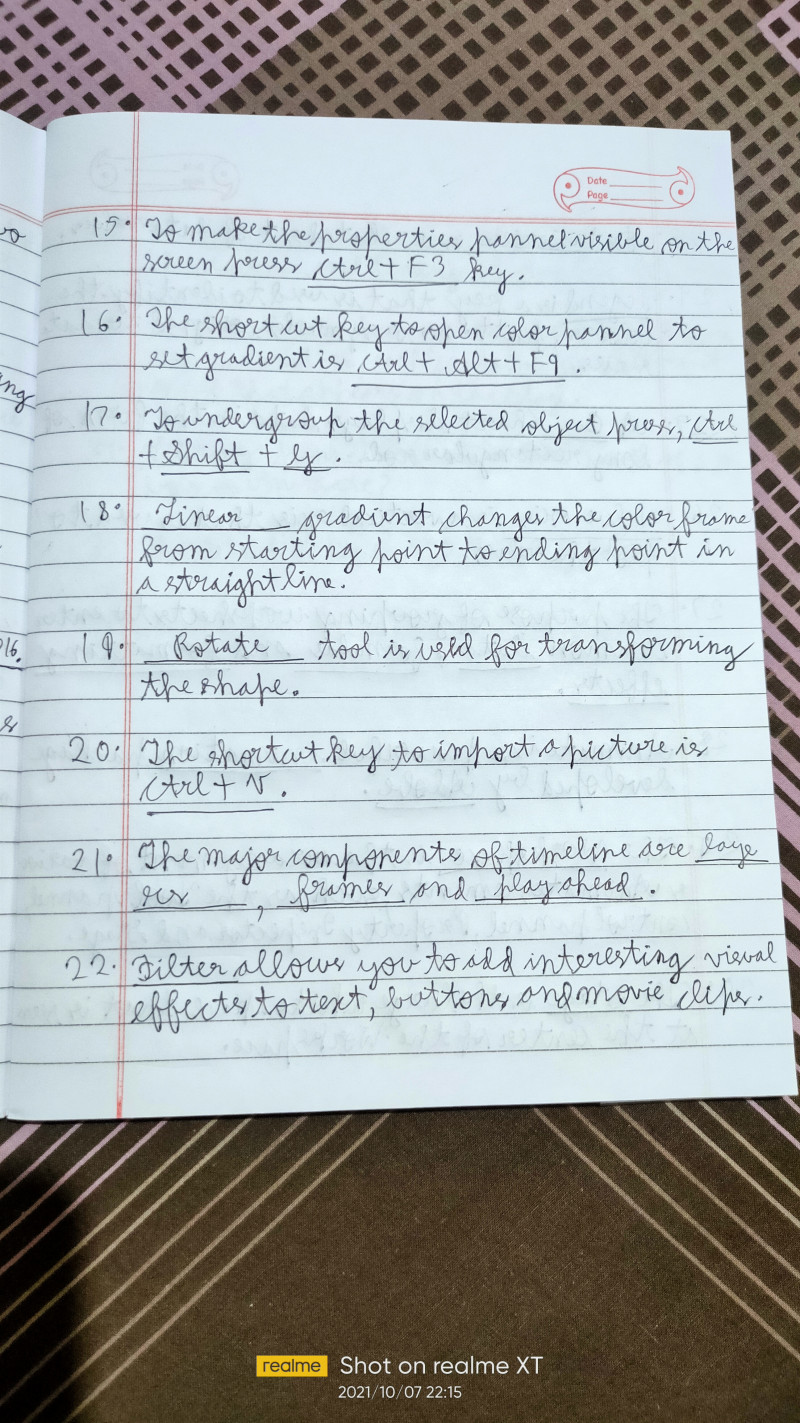 Date
Page
15. To make the properties pannel visible on the
screen press Ctrl + F3 key.
16. The short cut key to open color pannel to
set gradient is Ctrl + Alt + F9.
17. To undergroup the selected object press, Ctrl
+ Shift + G.
18. Linear gradient changes the color frame
from starting point to ending point in
a straight line.
19. Rotate tool is used for transforming
the shape.
20. The shortcut key to import a picture is
Ctrl + V.
21. The major components of timeline are laye
rs, frames and play ahead.
22. Filter allows you to add interesting visual
effects to text, buttons and movie clips.
ing
16.
realme Shot on realme XT
2021/10/07 22:15